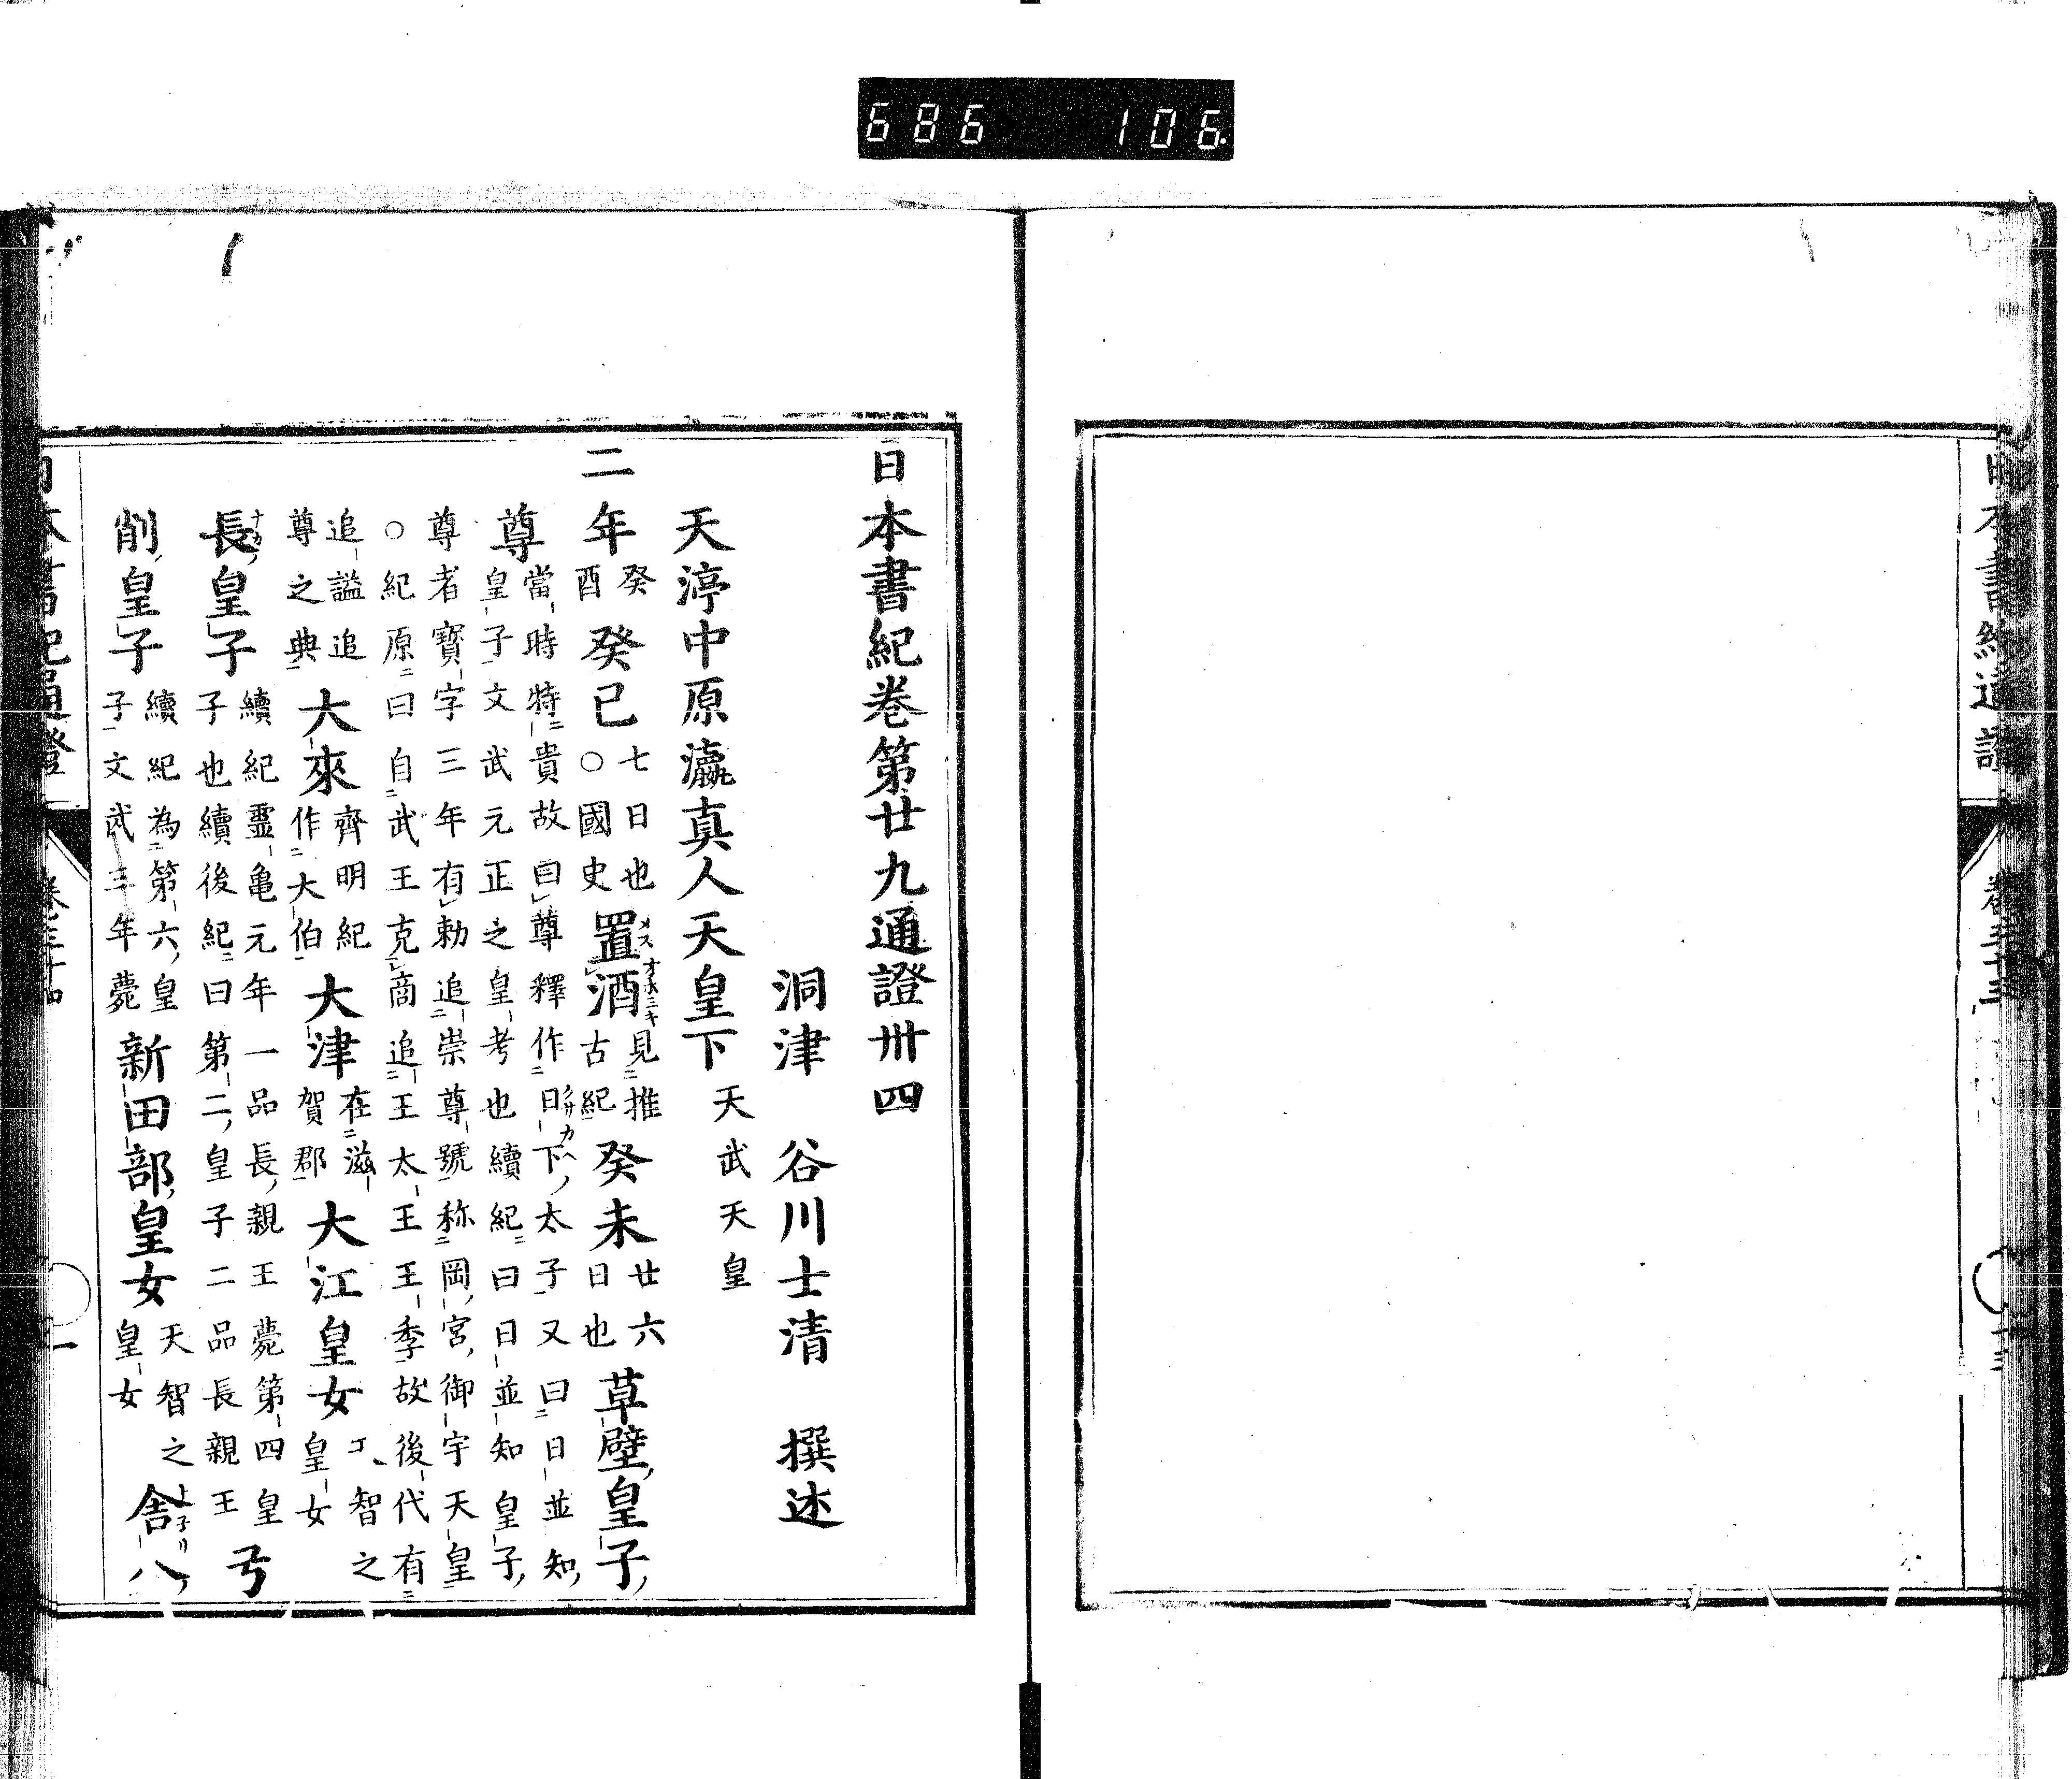 日本書紀通證
686 106
日本書紀卷第廿九通證卅四
洞津 谷川士清 撰述
天渟中原瀛真人天皇下 天武天皇
二年癸酉癸巳七日也○國史置酒見推古紀癸未廿六日也草壁皇子
尊當時特貴故曰尊釋作日下太子又曰日並知
皇子文武元正之皇考也續紀曰日並知皇子
尊者寶字三年有勅追崇尊號称岡宮御宇天皇
○紀原曰自武王克商追王太王王季故後代有
追謚追尊之典大來齊明紀作大伯大津在滋賀郡大江皇女智之皇女
長皇子續紀靈亀元年一品長親王薨第四皇子也續後紀曰第二皇子二品長親王弓
削皇子續紀為第六皇子文武三年薨新田部皇女天智之皇女舎人
日本書紀通證